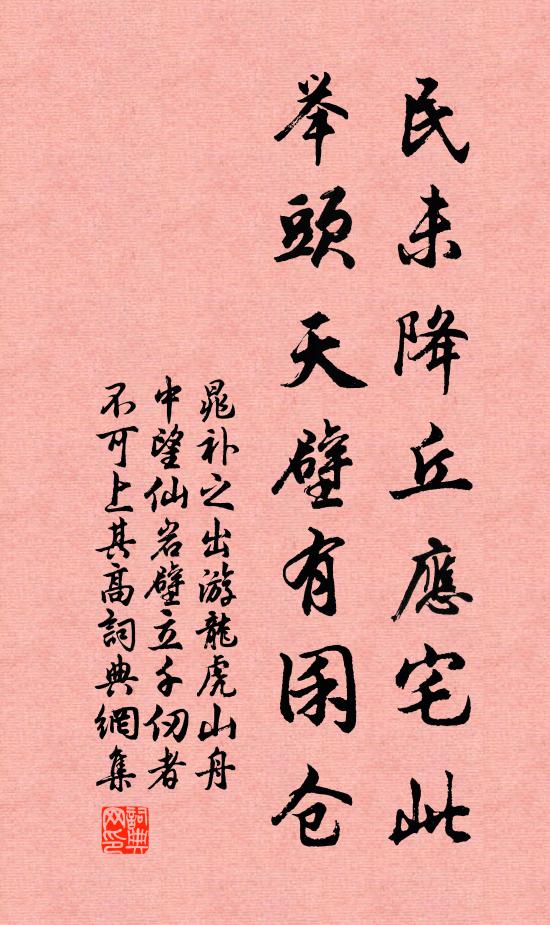 民未降丘應宅此
举頭天壁有囷仓
晁补之出游龍虎山舟
中望仙岩壁立千仞者
不可上其高詞典網集
詞典网印